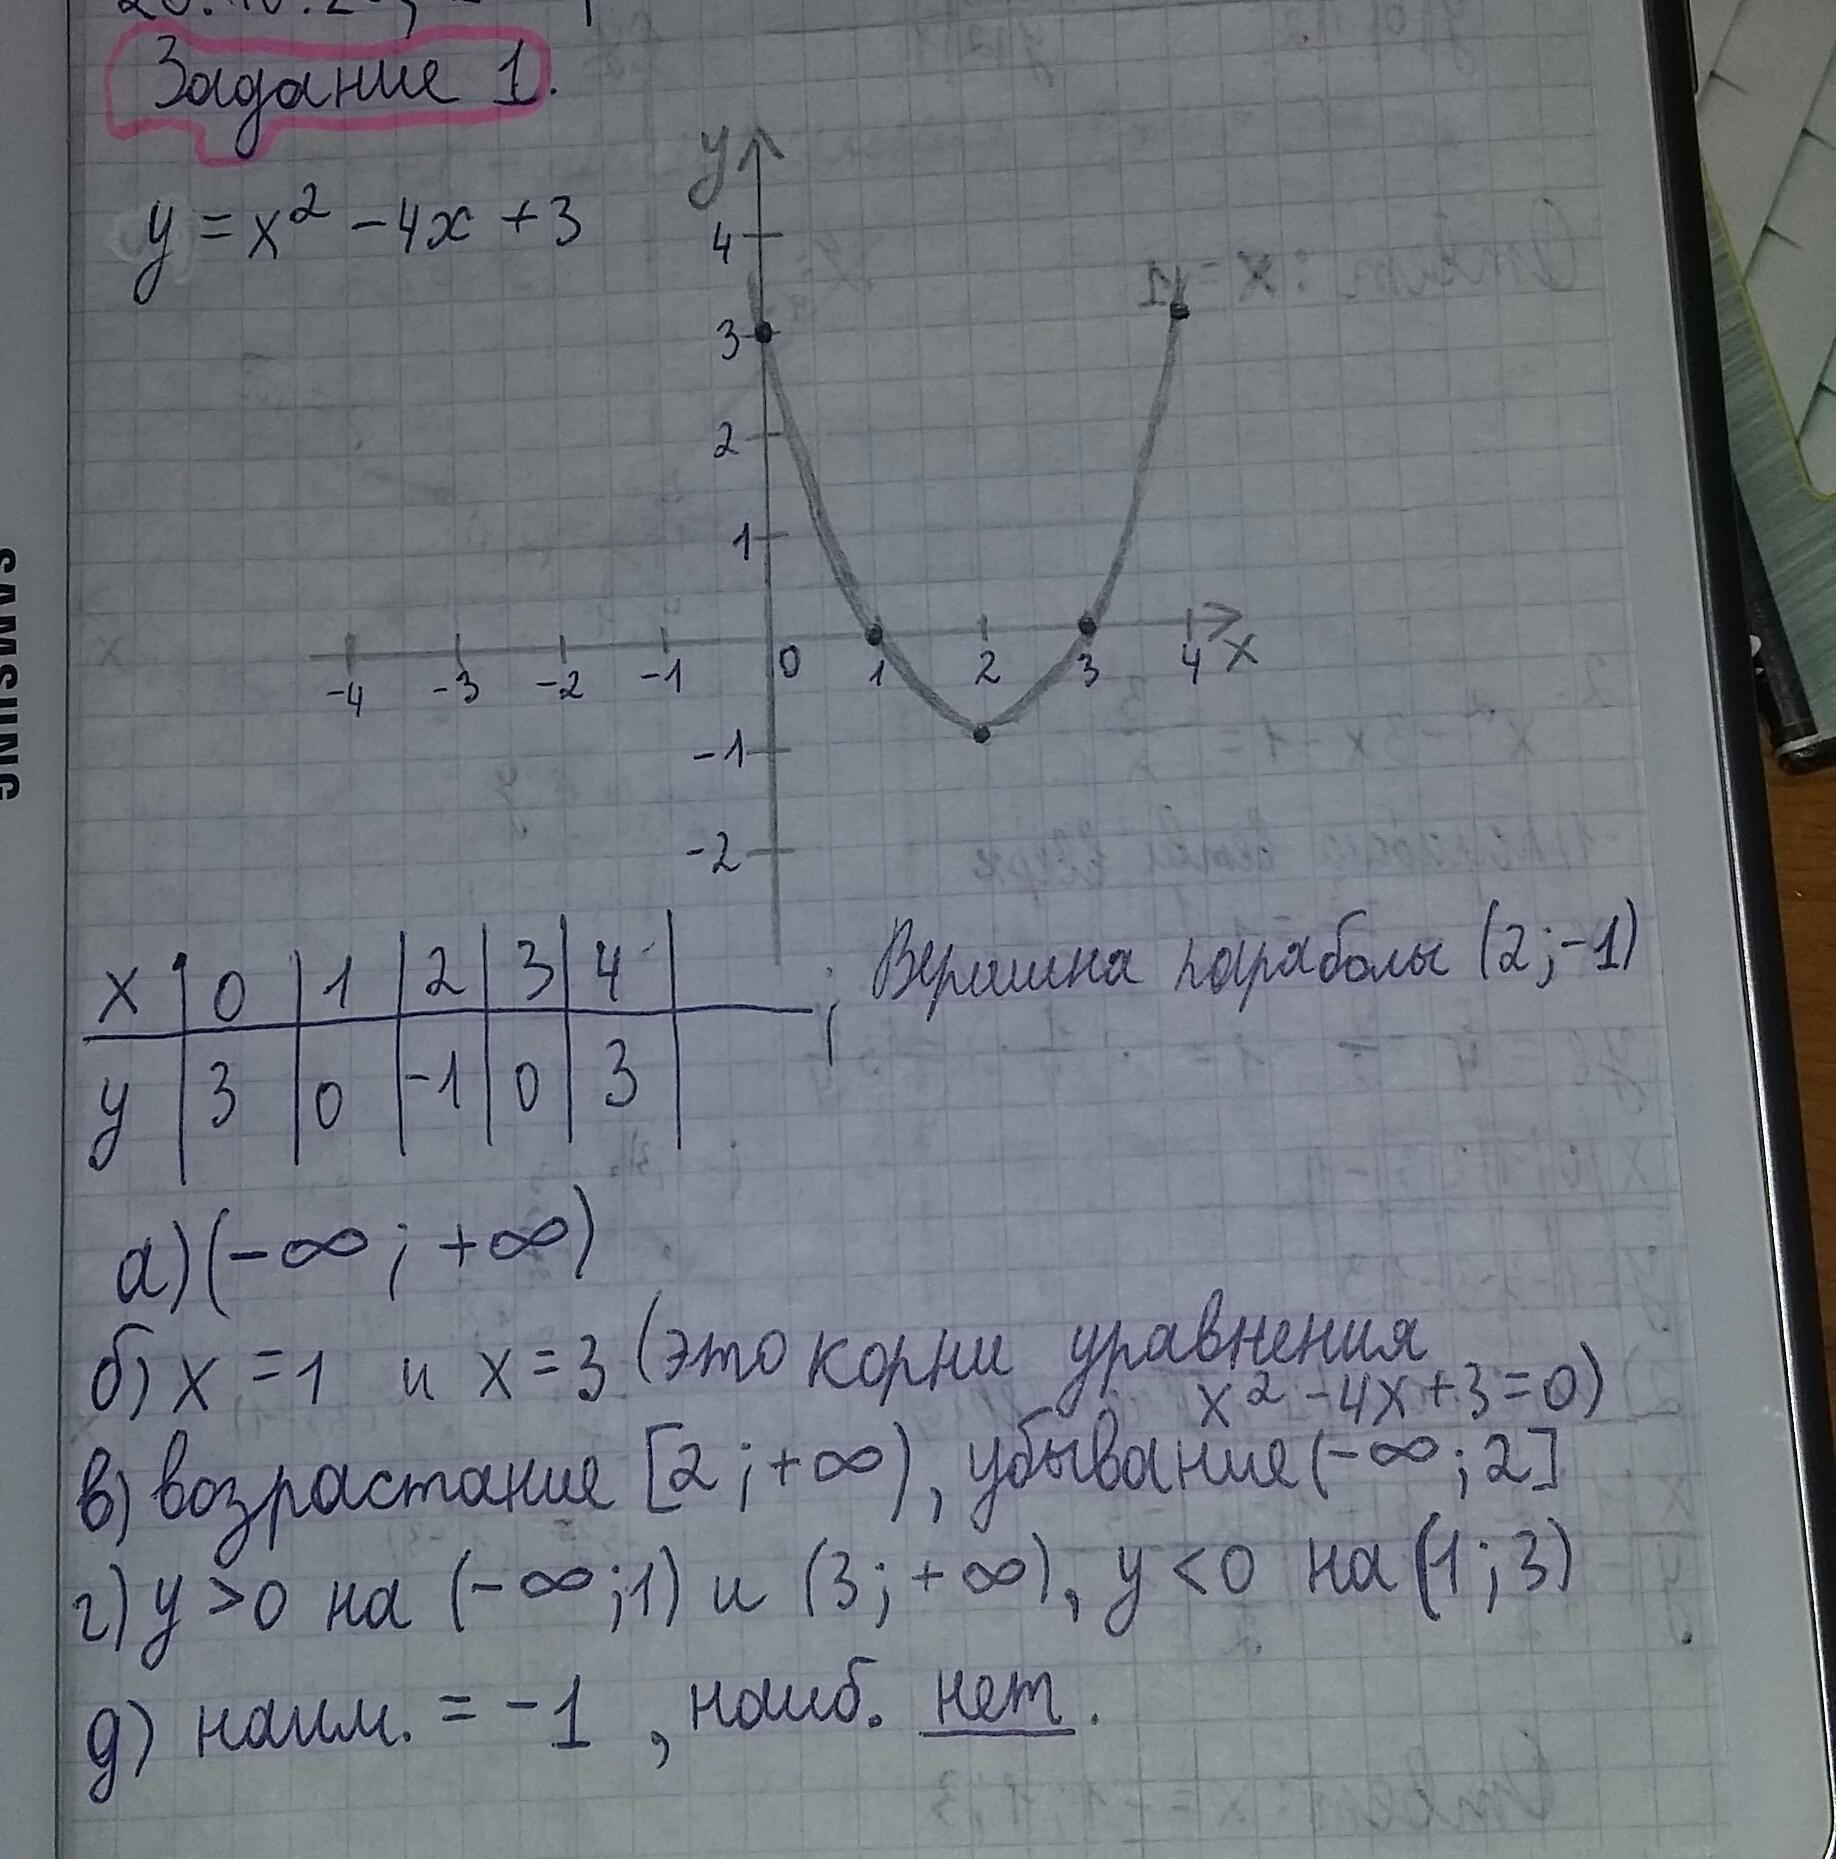 Задание 1.
y = x² - 4x + 3
y
4
3
2
1
-4 -3 -2 -1 0 1 2 3 4 x
-1
-2
x 0 1 2 3 4 ; Вершина параболы (2; -1)
y 3 0 -1 0 3
а) (-∞; +∞)
б) x = 1 и x = 3 (это корни уравнения
x² - 4x + 3 = 0)
в) возрастание [2; +∞), убывание (-∞; 2]
г) y > 0 на (-∞; 1) и (3; +∞), y < 0 на (1; 3)
д) наим. = -1, наиб. нет.
SAMSUNG